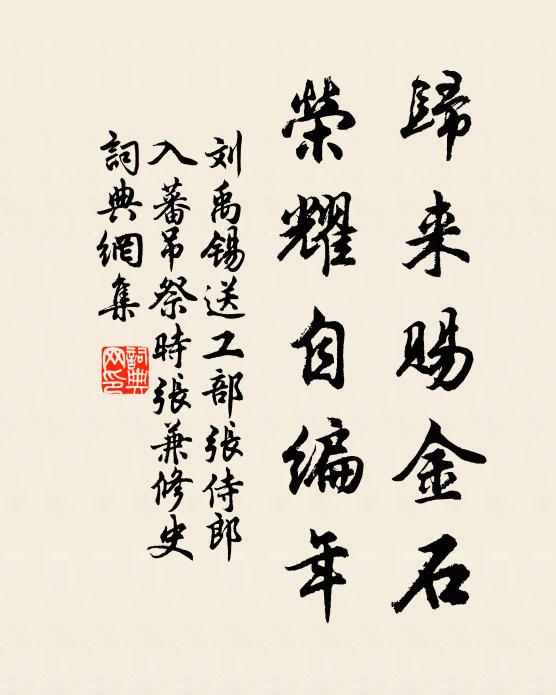 歸来賜金石
榮耀自编年
刘禹錫送工部張侍郎
入蕃吊祭時張兼修史
詞典網集
詞典网印